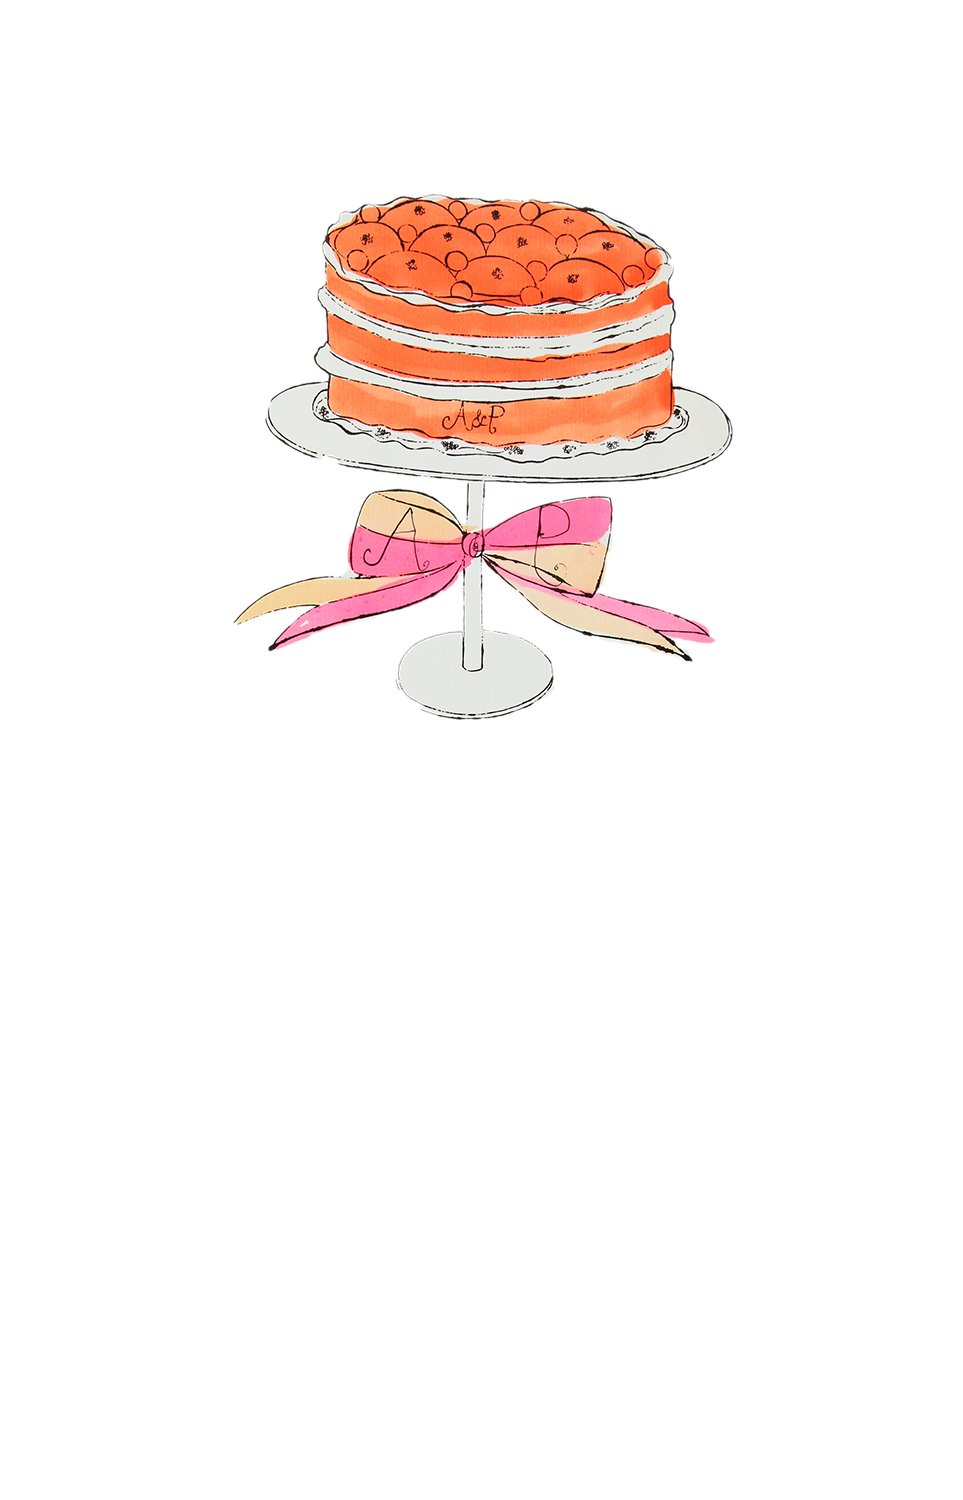 A&P
A P